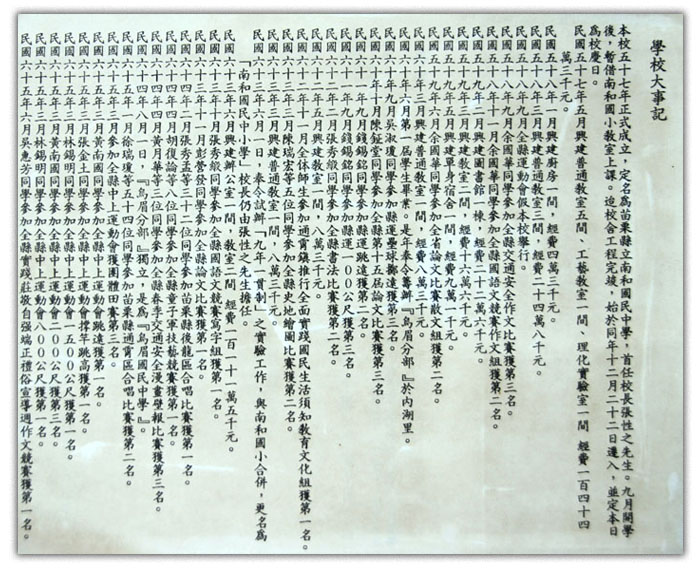 學校大事記
本校五十七年正式成立，定名為苗栗縣立南和國民中學，首任校長張性之先生。九月開學
後，暫借南和國小教室上課。迨校舍工程完竣，始於同年十二月二十二日遷入，並定本日
為校慶日。
民國五十七年五月興建普通教室五間、工藝教室一間、理化實驗室一間 經費一百四十四
萬三千元。
民國五十八年一月興建廚房一間，經費四萬三千元。
民國五十八年五月興建普通教室三間，經費二十四萬八千元。
民國五十八年九月全縣運動會假本校舉行。
民國五十八年九月余國華同學參加全縣交通安全作文比賽獲第三名。
民國五十八年十一月余國華同學參加全縣國語文競賽作文組獲第二名。
民國五十九年一月興建圖書館一棟，經費二十二萬六千元。
民國五十九年二月興建普通教室二間，經費十六萬六千元。
民國五十九年五月興建單身宿舍一間，經費九萬一千元。
民國五十九年六月余國華同學參加全省論文比賽散文組獲第二名。
民國六十年三月興建普通教室一間，經費八萬三千元。
民國六十年六月第一屆學生畢業。是年奉令籌辦『烏眉分部』於內湖里。
民國六十年九月吳淑瓊同學參加縣運壘球擲遠獲第三名。
民國六十年十月陳鉦堂同學參加全縣第十五屆論文比賽獲第三名。
民國六十一年九月錢錫銘同學參加縣運跳遠獲第二名。
民國六十一年九月錢錫銘同學參加縣運一００公尺獲第三名。
民國六十二年二月張秀緞同學參加全縣書法比賽獲第二名。
民國六十二年五月興建教室一間，八萬三千元。
民國六十二年十一月陳瑞宏等五位同學參加全縣史地繪圖比賽獲第二名。
民國六十二年十一月全体師生參加通霄鎮推行全面實踐國民生活須知教育文化組獲第一名。
民國六十三年六月一日，奉令試辦『九年一貫制』之實驗工作，與南和國小合併，更名為
「南和國民中小學」校長仍由張性之先生擔任。
民國六十三年六月興建辦公室一間，教室二間 經費一百一十一萬五千元。
民國六十三年十月張秀緞同學參加全縣國語文競賽寫字組獲第一名。
民國六十三年十一月彭營發同學參加全縣論文比賽獲第一名。
民國六十四年二月張秀孟等三十二位同學參加苗栗縣後龍區合唱比賽獲第一名。
民國六十四年四月胡復論等八位同學參加全縣童子軍技藝競賽獲第一名。
民國六十四年四月黃月華等三位同學參加全縣春季交通安全漫畫壁報比賽獲第三名。
民國六十四年八月一日，『烏眉分部』獨立，是為『烏眉國民中學』。
民國六十五年一月徐瑞瓊等五十四位同學參加苗栗縣通霄區合唱比賽獲第二名。
民國六十五年三月參加全縣中上運動會獲團體田賽第三名。
民國六十五年三月黃南國同學參加全縣中上運動會跳遠獲第一名。
民國六十五年三月張金土同學參加全縣中上運動會撐竿跳高獲第一名。
民國六十五年三月林錫明同學參加全縣中上運動會一五００公尺獲第一名。
民國六十五年三月黃南國同學參加全縣中上運動會二００公尺獲第三名。
民國六十五年三月林錫明同學參加全縣中上運動會八００公尺獲第一名。
民國六十五年六月吳惠芳同學參加全縣實踐莊敬自強端正禮俗宣導週作文競賽獲第一名。